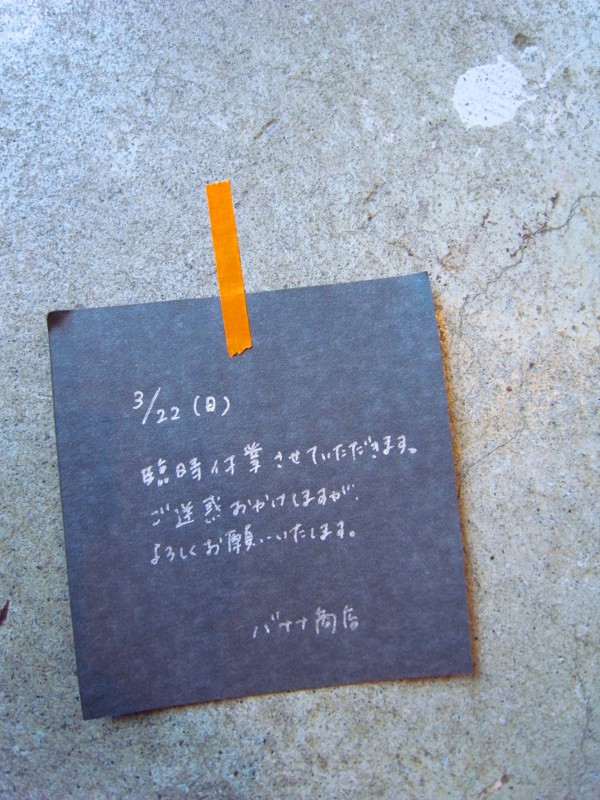 3/22(日)
臨時休業させていただきます。
ご迷惑おかけしますが、
よろしくお願いいたします。
バナナ商店